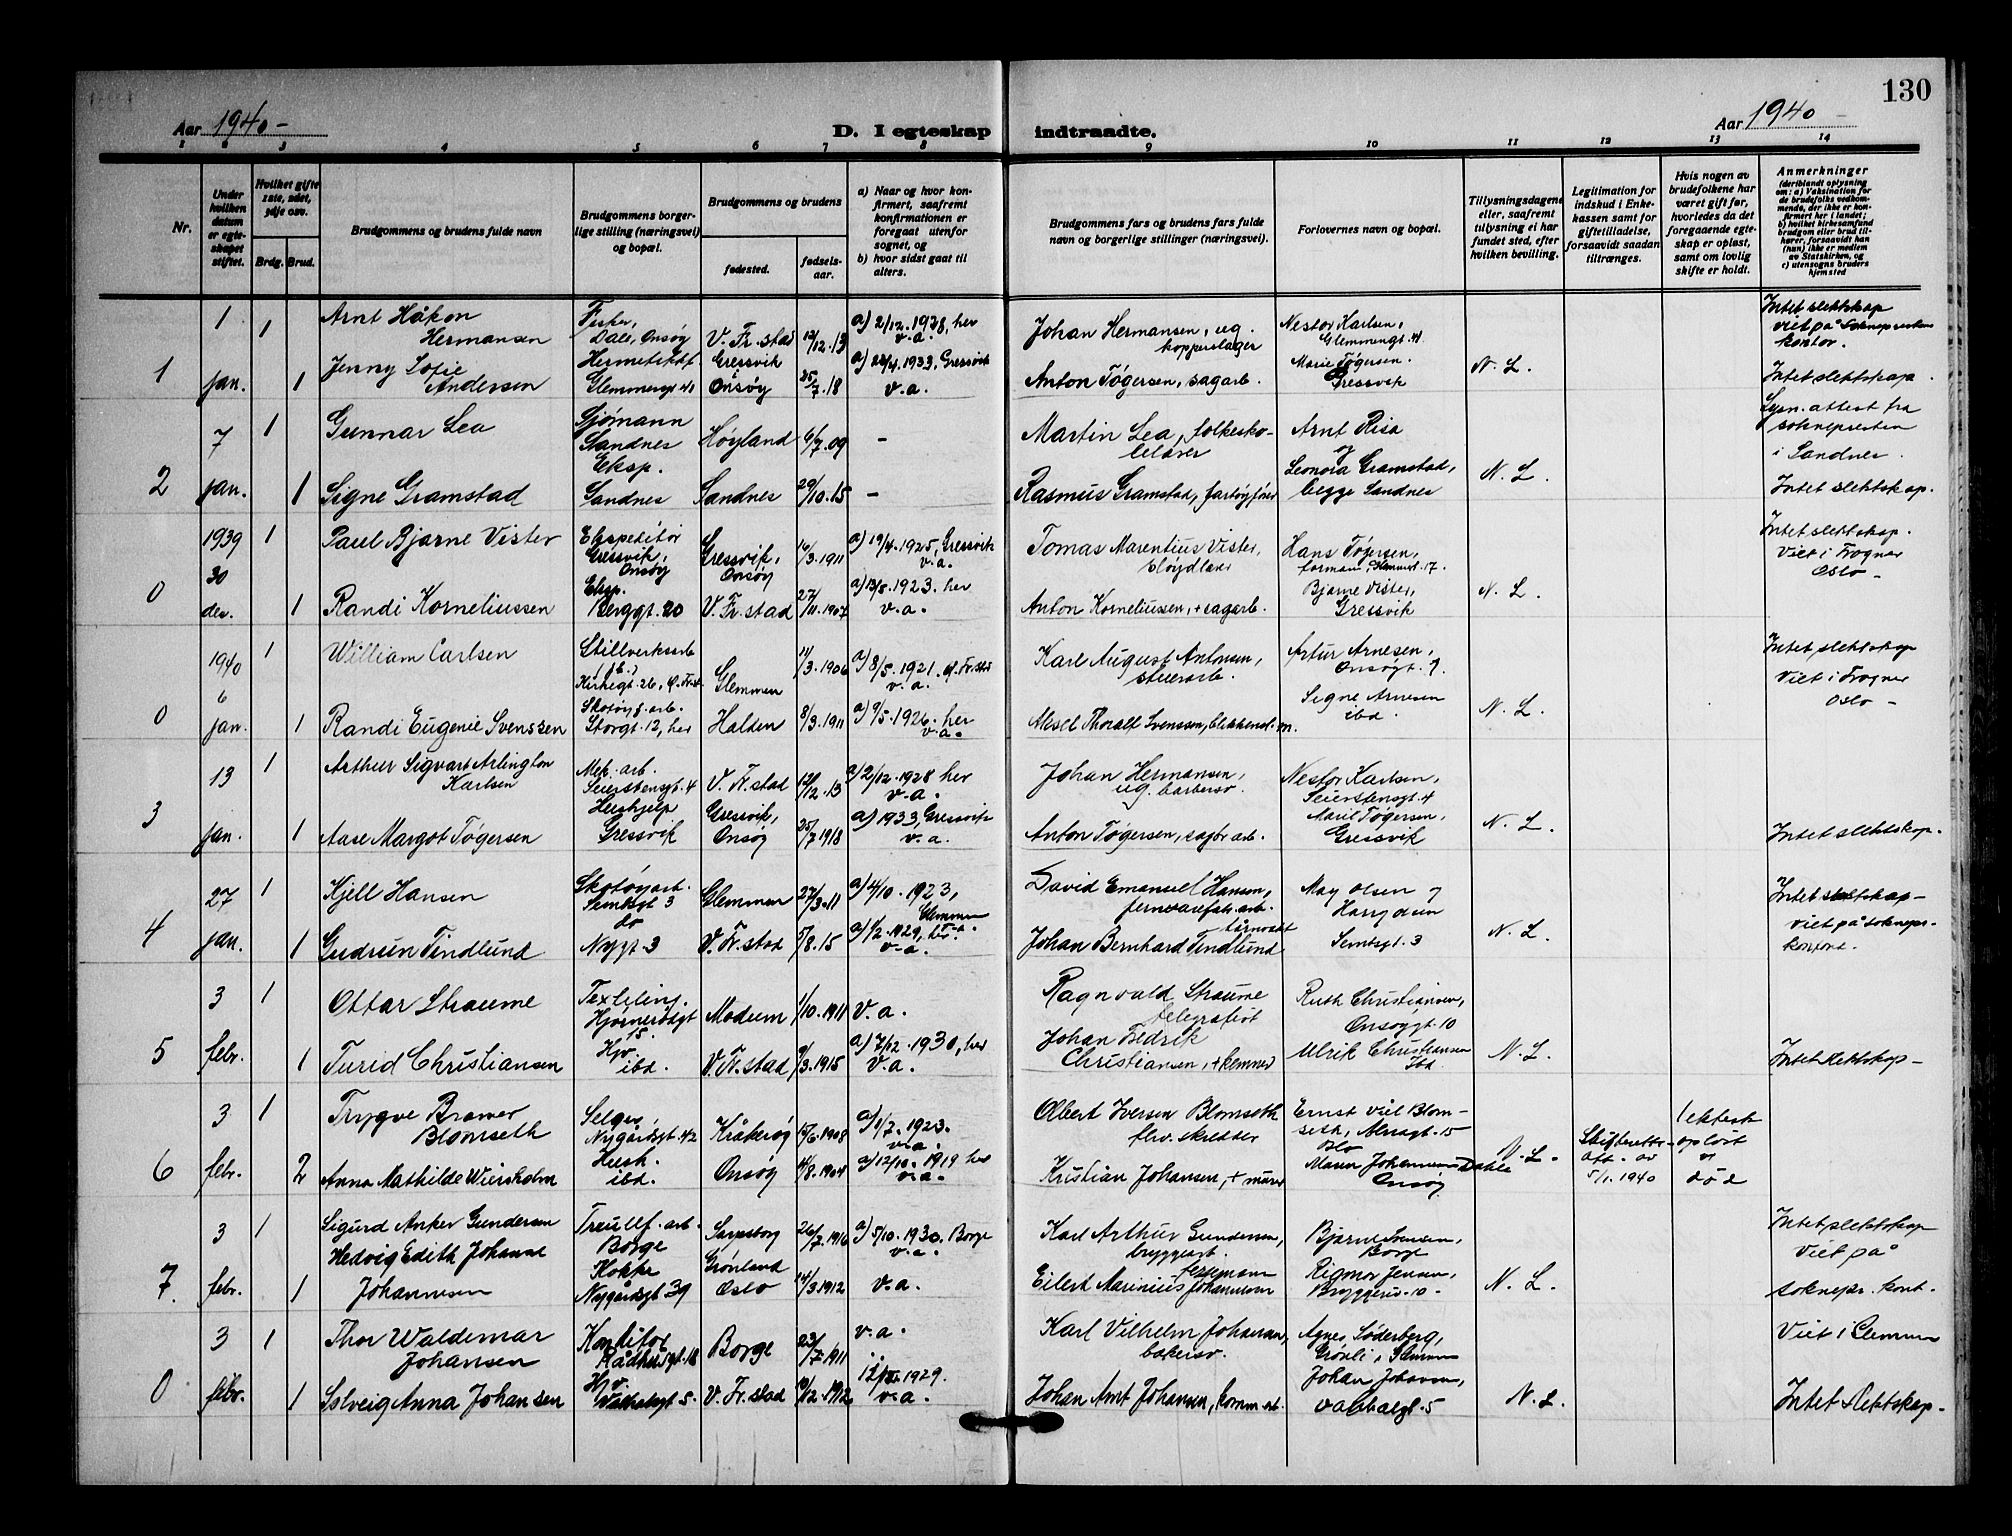 130
Aar 1940 -
D. I egteskap indtraadte.
Aar 1940 -
1 2 3 4 5 6 7 8 9 10 11 12 13 14
Nr.
Under hvilken datum er egteskapet stiftet.
Hvilket gifte 1ste, 2det, 3dje osv.
Brdg. Brud.
Brudgommens og brudens fulde navn
Brudgommens borgerlige stilling (næringsvei) og bopæl.
Brudgommens og brudens
fødested.
fødselsaar.
a) Naar og hvor konfirmert, saafremt konfirmationen er foregaat utenfor sognet, og
b) hvor sidst gaat til alters.
Brudgommens fars og brudens fars fulde navn og borgerlige stillinger (næringsvei).
Forlovernes navn og bopæl.
Tillysningsdagene eller, saafremt tillysning ei har fundet sted, efter hvilken bevilling.
Legitimation for indskud i Enkekassen samt for giftetilladelse, forsaavidt saadan tiltrænges.
Hvis nogen av brudefolkene har været gift før, hvorledes da det foregaaende egteskap er opløst, samt om lovlig skifte er holdt.
Anmerkninger
(deriblandt oplysning om: a) Vaksination for de brudefolks vedkommende, der ikke er konfirmert her i landet; b) hvilket kirkesamfund brudgom eller brud tilhører, forsaavidt han (hun) ikke er medlem av Statskirken, og c) utensogns bruders hjemsted
1 1 Arnt Håkon Hermansen Fisker, Dale, Onsøy V. Fr.stad 12/12.13 a) 2/12.1928, her v.a. Johan Hermansen, ug. kopperslager Nestor Karlsen, Glemmengt. 41 Intet slektskap viet på sokneprestens kontor.
1 jan. 1 Jenny Sofie Andersen Glemmengt 41 Gressvik Onsøy 25/7.18 1933, Gressvik v.a. Anton Tøgersen, sagarb. Marie Tøgersen. Gressvik N. L. Intet slektskap.
7 1 Gunnar Lea Sjømann Sandnes Høyland 6/7.09 - Martin Lea, folkeskolelærer Arnt Risa og Lysn. attest fra soknepresten i Sandnes.
2 jan. 1 Signe Gramstad Eksp. Sandnes Sandnes 29/10.15 - Rasmus Gramstad, fartøyfører Leonora Gramstad, begge Sandnes N. L. Intet slektskap.
1939 30 1 Paul Bjarne Vister Ekspeditør Gressvik, Onsøy Gressvik, Onsøy 16/3.1911 a) 19/4.1925, Gressvik v.a. Tomas Marentius Vister, sløydlærer Hans Tøgersen, formann, Glemmengt. 17. Intet slektskap. Viet i Frogner Oslo -
0 des. 1 Randi Korneliussen Eksp. Berggt. 20 V. Fr.stad 27/11.1907 a) 13/5.1923. her v.a. Anton Korneliussen, + sagarb. Bjarne Vister, Gressvik N. L.
1940 6 1 William Carlsen Kirkegt. 26, Ø. Fr.st. Glemmen 11/3.1906 a) 8/5.1921. Ø. Fr.stad v.a. Karl August Antonsen, stenarb. Artur Arnesen, Onsøygt. 7. Intet slektskap Viet i Frogner Oslo -
0 jan. 1 Randi Eugenie Svenssen Skotøyf. arb. Storgt. 12, her Halden 8/3.1911 a) 9/5.1926. her v.a. Aksel Thoralf Svenssen, blikkensl. m. Signe Arnesen ibd. N. L.
13 1 Arthur Sigvart Arlington Karlsen Mek. arb. Seierstensgt. 4 V. Fr.stad 12/12.13 a) 2/12.1928 her v.a. Johan Hermansen, ug. barbersv. Nestor Karlsen, Seierstensgt. 4
3 jan. 1 Aase Margot Tøgersen Hushjelp Gressvik Gressvik, Onsøy 25/7.1918 a) 1933, Gressvik v.a. Anton Tøgersen, sagbr. arb. Marie Tøgersen, Gressvik N. L. Intet slektskap.
27 1 Kjell Hansen Skotøyarb. Sembsgt 3 Glemmen 27/3.11 a) 4/10.1923, Glemmen v.a. David Emanuel Hansen, jernvarefabr. arb. May Olsen og Harry Olsen Intet slektskap - viet på soknepr. kontoret.
4 jan. 1 Gudrun Tindlund do Nygt. 3 V. Fr.stad 5/8.15 a) 1/12.1929, her. v.a. Johan Bernhard Tindlund tårnvakt Sembsgt. 3 N. L.
3 1 Ottar Straume Hjørnerødgt 15. Modum 1/10.1911 v.a. Ragnvald Straume telegrafist Ruth Christiansen, Onsøygt. 10
5 febr. 1 Turid Christiansen ibd. V. Fr.stad 9/3.1915 a) 7/12.1930, her v.a. Johan Fredrik Christiansen, + kemner Ulrik Christiansen Ibd. N. L. Intet slektskap -
3 1 Trygve Brawer Blomseth Selger, Nygårdsgt. 42 Kråkerøy 15/6.1908 a) 1/7.1923. v.a. Olbert Iversen Blomseth frv. skredder Ernst Viel Blomseth, 15 Oslo 1 ektesk. opløst v. død
6 febr. 2 Anna Mathilde Wiersholm Hush. ibd. Onsøy 11/8.1904 a) 12/10.1919 her v.a. Kristian Johansen, + murer Maren Johannessen Dahle Onsøy N. L. Skifterettsatt. av 5/1.1940
3 1 Sigurd Anker Gundersen Treullf. arb. Borge Sarpsborg 26/7.1916 a) 5/10.1930. Borge v.a. Karl Arthur Gundersen, bryggearb. Bjarne Svensen, Borge Intet slektskap Viet på
7. febr. 1 Hedvig Edith Johanne Johannesen Kokke Nygårdsgt 39 Grønland Oslo 14/3.1912 v.a. Eilert Marinius Johannesen fergemann Rigmor Jensen, Bryggeriv. 10 - N. L. soknepr. kont.
3 1 Thor Waldemar Johansen Konditor Rådhusgt. 18 Borge 23/7.1911 v.a. Karl Vilhelm Johansen, bakersv. Agnes Søderberg, Grønli i Glemmen Viet i Glemmen
0 febr. 1 Solveig Anna Johansen Valdalsgt 5. V. Fr.stad 10/12.1912 1929. v.a. Johan Arnt Johansen, komm. arb. Johan Johansen, N. L. Intet slektskap -